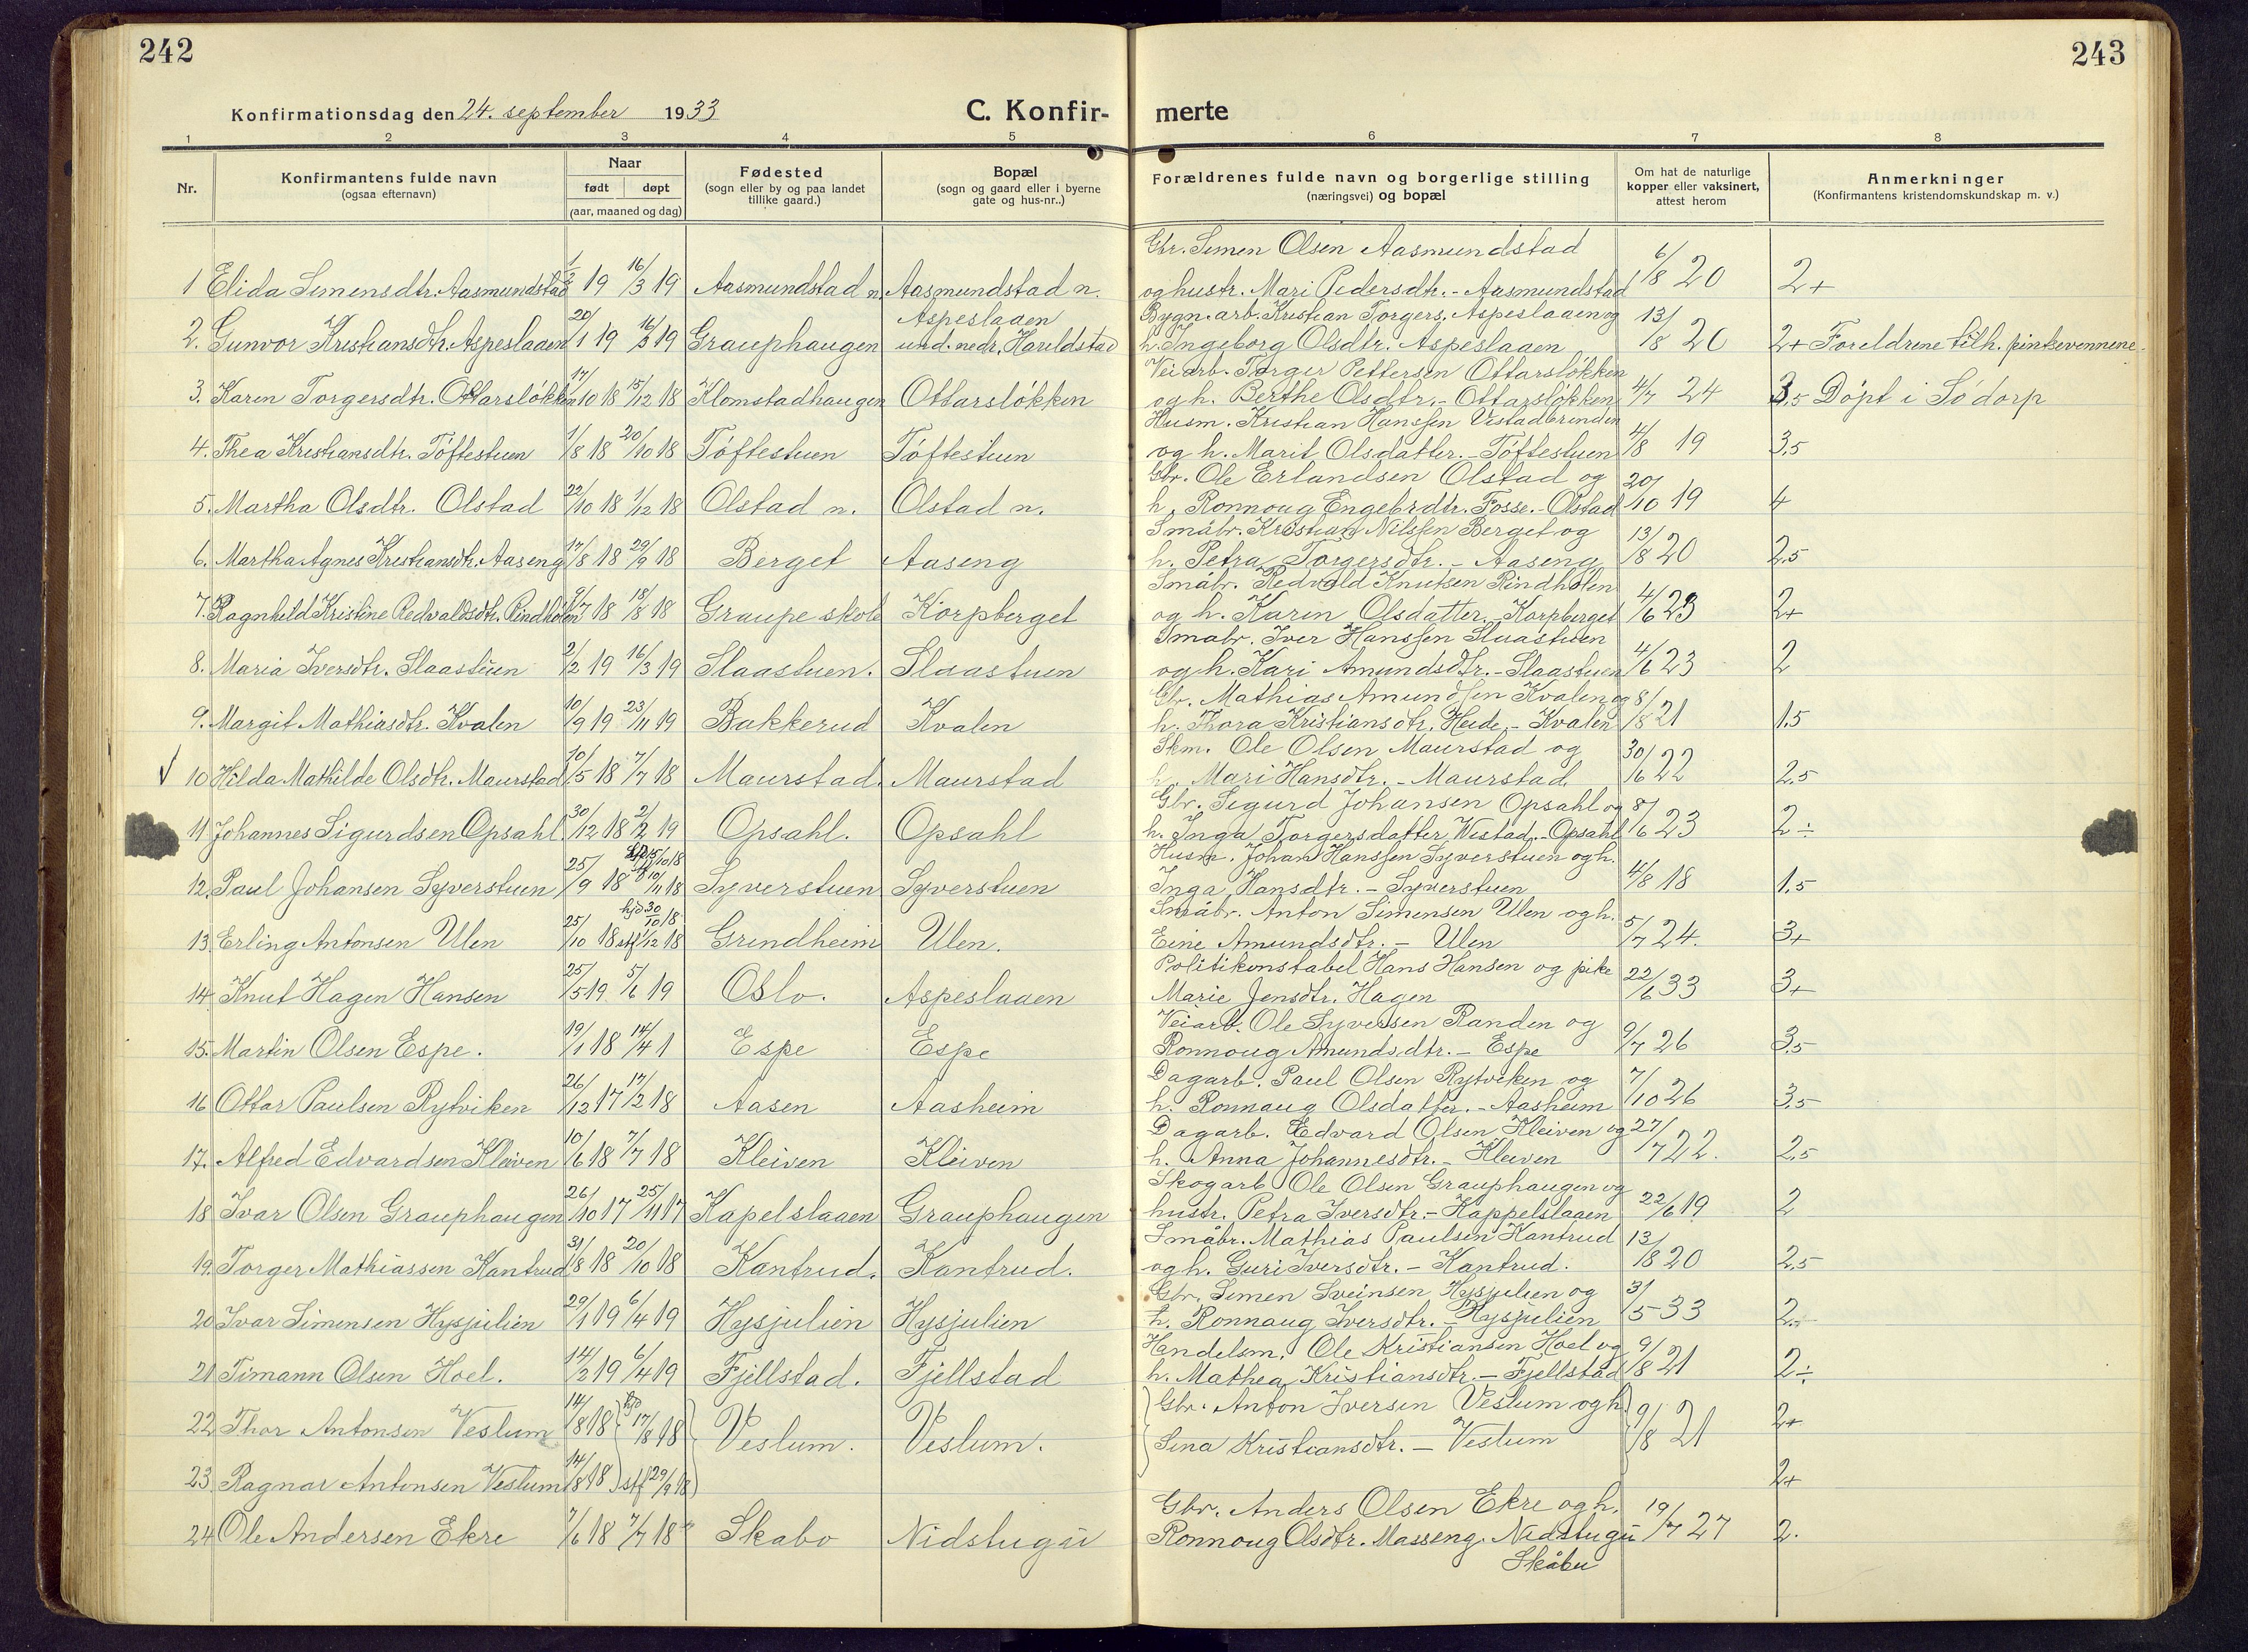 242
243
Konfirmationsdag den 24. september 1933
C. Konfir-
merte
1 2 3 4 5 6 7 8
Nr.
Konfirmantens fulde navn
(ogsaa efternavn)
Naar
født døpt
(aar, maaned og dag)
Fødested
(sogn eller by og paa landet
tillike gaard.)
Bopæl
(sogn og gaard eller i byerne
gate og hus-nr..)
Forældrenes fulde navn og borgerlige stilling
(næringsvei) og bopæl
Om hat de naturlige
kopper eller vaksinert,
attest herom
Anmerkninger
(Konfirmantens kristendomskundskap m. v.)
Gbr. Simen Olsen Aasmundstad
1 Elida Simensdtr. Aasmundstad 1/2 19 16/3 19 Aasmundstad n. Aasmundstad n. og hustr. Mari Pedersdtr. - Aasmundstad 6/8 20 2+
Aspeslaaen Bygn.arb. Kristian Torgers. Aspeslaaen og
2. Gunvor Kristiansdtr. Aspeslaaen 20/1 19 16/3 19 Grauphaugen und. nedr. Haraldstad h. Ingeborg Olsdtr. Aspeslaaen 13/8 20 2+ Foreldrene tilh. pinsevennene.
Veiarb. Torger Pettersen Ottarsløkken
3. Karen Torgersdtr. Ottarsløkken 17/10 18 15/12 18 Klomstadhaugen Ottarsløkken og h. Berthe Olsdtr. - Ottarsløkken 4/7 24 3,5 Døpt i Sødorp
Husm. Kristian Hanssen Vistadbrenden
4. Thea Kristiansdtr. Tøftestuen 1/8 18 20/10 18 Tøftestuen Tøftestuen og h. Marit Olsdatter. - Tøftestuen 4/8 19 3,5
Gbr. Ole Erlandsen Olstad og
5. Martha Olsdtr. Olstad 22/10 18 1/12 18 Olstad n. Olstad n. h. Ronnoug Engebrdtr. Fosse. - Olstad 20/10 19 4
Småbr. Kristian Nilssen Berget og
6. Martha Agnes Kristiansdtr. Aaseng 17/8 18 29/9 18 Berget Aaseng h. Petra Torgersdtr. - Aaseng 13/8 20 2,5
Småbr. Redvald Knutsen Rindhølen
7. Ragnhild Kristine Redvaldsdtr. Rindhølen 9/7 18 18/8 18 Graupe skole Korpberget og h. Karin Olsdatter. Korpberget 4/6 23 2+
Småbr. Iver Hanssen Slaastuen
8. Maria Iversdtr. Slaastuen 2/2 19 16/3 19 Slaastuen. Slaastuen og h. Kari Amundsdtr. - Slaastuen 4/6 23 2
Gbr. Mathias Amundsen Kvalen og
9. Margit Mathiasdtr. Kvalen 10/9 19 23/11 19 Bakkerud Kvalen h. Thora Kristiansdtr. Heide. - Kvalen 8/8 21 1,5
Skm. Ole Olsen Maurstad og
10 Hilda Mathilde Olsdtr. Maurstad 10/5 18 7/7 18 Maurstad. Maurstad h. Mari Hansdtr. - Maurstad 30/6 22 2,5
Gbr. Sigurd Johansen Opsahl og
11 Johannes Sigurdsen Opsahl 30/12 18 2/2 19 Opsahl. Opsahl h. Inga Torgersdatter Wistad. - Opsahl 8/6 23 2÷
15/10 18 Husm. Johan Hanssen Syverstuen og h.
12. Paul Johansen Syverstuen 25/9 18 10/11 18 Syverstuen Syverstuen Inga Hansdtr. - Syverstuen 4/8 18 1,5
hjd 30/10 18 Småbr. Anton Simensen Ulen og h.
13. Erling Antonsen Ulen 25/10 18 stf 1/12 18 Grindheim Ulen. Eine Amundsdtr. - Ulen 5/7 24. 3+
Politikonstabel Hans Hansen og pike
14. Knut Hagen Hansen 25/5 19 5/6 19 Oslo. Aspeslaaen Marie Jensdtr. Hagen 22/6 33 3+
Veiarb. Ole Syversen Randen og
15. Martin Olsen Espe. 19/1 18 14/4 1 Espe Espe Ronnoug Amundsdtr. - Espe 9/7 26 3,5
Dagarb. Paul Olsen Rytviken og
16 Ottar Paulsen Rytviken 26/12 17 17/2 18 Aasen Aasheim h. Ronnaug Olsdatter. - Aasheim 7/10 26 3,5
Dagarb. Edvard Olsen Kleiven og
17. Alfred Edvardsen Kleiven 10/6 18 7/7 18 Kleiven Kleiven h. Anna Johannesdtr. - Kleiven 27/7 22. 2,5
Skogarb. Ole Olsen Grauphaugen og
18 Ivar Olsen Grauphaugen 26/10 17 25/11 17 Kapelslaaen Grauphaugen hustr. Petra Iversdtr. - Kappelslaaen 22/6 19 2
Småbr. Mathias Paulsen Kantrud
19. Torger Mathiassen Kantrud 31/8 18 20/10 18 Kantrud. Kantrud. og h. Guri Iversdtr. - Kantrud. 13/8 20 2,5
Gbr. Simen Sveinsen Hysjulien og
20 Ivar Simensen Hysjulien 29/1 19 6/4 19 Hysjulien Hysjulien h. Ronnaug Iversdtr. - Hysjulien 31/5 33 2+
Handelsm. Ole Kristiansen Hoel og
21 Timann Olsen Hoel. 14/2 19 6/4 19 Fjellstad. Fjellstad h. Mathea Kristiansdtr. - Fjellstad 9/8 21 2÷
Gbr. Anton Iversen Veslum og h.
22 Thor Antonsen Veslum 14/8 18 hjd 17/8 18 Veslum. Veslum. Sina Kristiansdtr. - Veslum 9/8 21 2+
23 Ragnar Antonsen Veslum 14/8 18 stf 29/9 18 2+
Gbr. Anders Olsen Ekre og h.
24 Ole Andersen Ekre 7/6 18 7/7 18 Skabo Nidstugu Ronnoug Olsdtr. Masseng. Nidstugu 19/7 27 2.
Skåbu